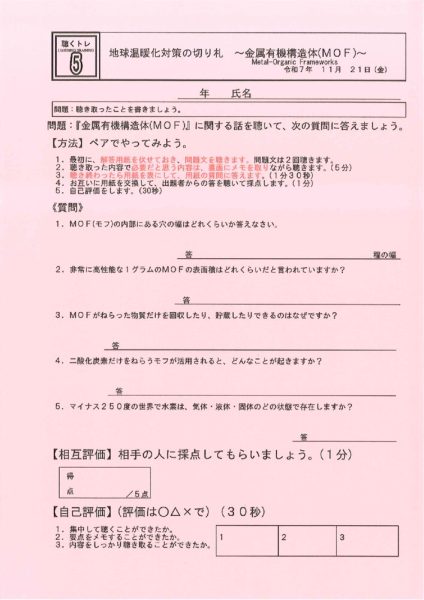 聴くトレ
LISTENING TRAINING
5
地球温暖化対策の切り札 ～金属有機構造体(MOF)～
Metal-Organic Frameworks
令和7年 11月 21日(金)
年 氏名
問題:聴き取ったことを書きましょう。
問題:『金属有機構造体(MOF)』に関する話を聴いて、次の質問に答えましょう。
【方法】ペアでやってみよう。
1．最初に、解答用紙を伏せておき、問題文を聴きます。問題文は2回聴きます。
2．聴き取った内容で必要だと思う内容は、裏面にメモを取りながら聴きます。(5分)
3．聴き終わったら用紙を表にして、用紙の質問に答えます。(1分30秒)
4．お互いに用紙を交換して、出題者からの答を聴いて採点します。(1分)
5．自己評価をします。(30秒)
《質問》
1．MOF(モフ)の内部にある穴の幅はどれくらいか答えなさい。
答 の幅
2．非常に高性能な1グラムのMOFの表面積はどれくらいだと言われていますか？
答
3．MOFがねらった物質だけを回収したり、貯蔵したりできるのはなぜですか？
答
4．二酸化炭素だけをねらうモフが活用されると、どんなことが起きますか？
答
5．マイナス250度の世界で水素は、気体・液体・固体のどの状態で存在しますか？
答
【相互評価】相手の人に採点してもらいましょう。(1分)
得
点 /5点
【自己評価】(評価は○△×で) (30秒)
1．集中して聴くことができたか。
2．要点をメモすることができたか。
3．内容をしっかり聴き取ることができたか。
1 2 3